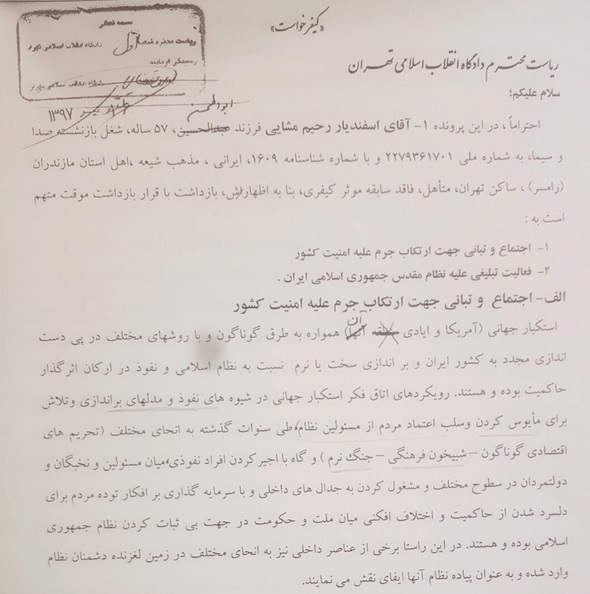 «کیفرخواست»
ریاست محترم دادگاه انقلاب اسلامی تهران
سلام علیکم؛
۱۳۹۷
احتراماً ، در این پرونده ۱- آقای اسفندیار رحیم مشایی فرزند ، ۵۷ ساله، شغل بازنشسته صدا
و سیما، به شماره ملی ۲۲۷۹۳۶۱۷۰۱ و با شماره شناسنامه ۱۶۰۹، ایرانی ، مذهب شیعه ،اهل استان مازندران
(رامسر) ، ساکن تهران، متأهل، فاقد سابقه موثر کیفری، بنا به اظهارش، بازداشت با قرار بازداشت موقت متهم
است به :
۱- اجتماع و تبانی جهت ارتکاب جرم علیه امنیت کشور
۲- فعالیت تبلیغی علیه نظام مقدس جمهوری اسلامی ایران .
الف- اجتماع و تبانی جهت ارتکاب جرم علیه امنیت کشور
استکبار جهانی (آمریکا و ایادی آن) همواره به طرق گوناگون و با روشهای مختلف در پی دست
اندازی مجدد به کشور ایران و بر اندازی سخت یا نرم نسبت به نظام اسلامی و نفوذ در ارکان اثرگذار
حاکمیت بوده و هستند. رویکردهای اتاق فکر استکبار جهانی در شیوه های نفوذ و مدلهای براندازی وتلاش
برای مأیوس کردن وسلب اعتماد مردم از مسئولین نظام،طی سنوات گذشته به انحای مختلف (تحریم های
اقتصادی گوناگون – شبیخون فرهنگی – جنگ نرم ) و گاه با اجیر کردن افراد نفوذی،میان مسئولین و نخبگان و
دولتمردان در سطوح مختلف و مشغول کردن به جدال های داخلی و با سرمایه گذاری بر افکار توده مردم برای
دلسرد شدن از حاکمیت و اختلاف افکنی میان ملت و حکومت در جهت بی ثبات کردن نظام جمهوری
اسلامی بوده و هستند. در این راستا برخی از عناصر داخلی نیز به انحای مختلف در زمین لغزنده دشمنان نظام
وارد شده و به عنوان پیاده نظام آنها ایفای نقش می نمایند.